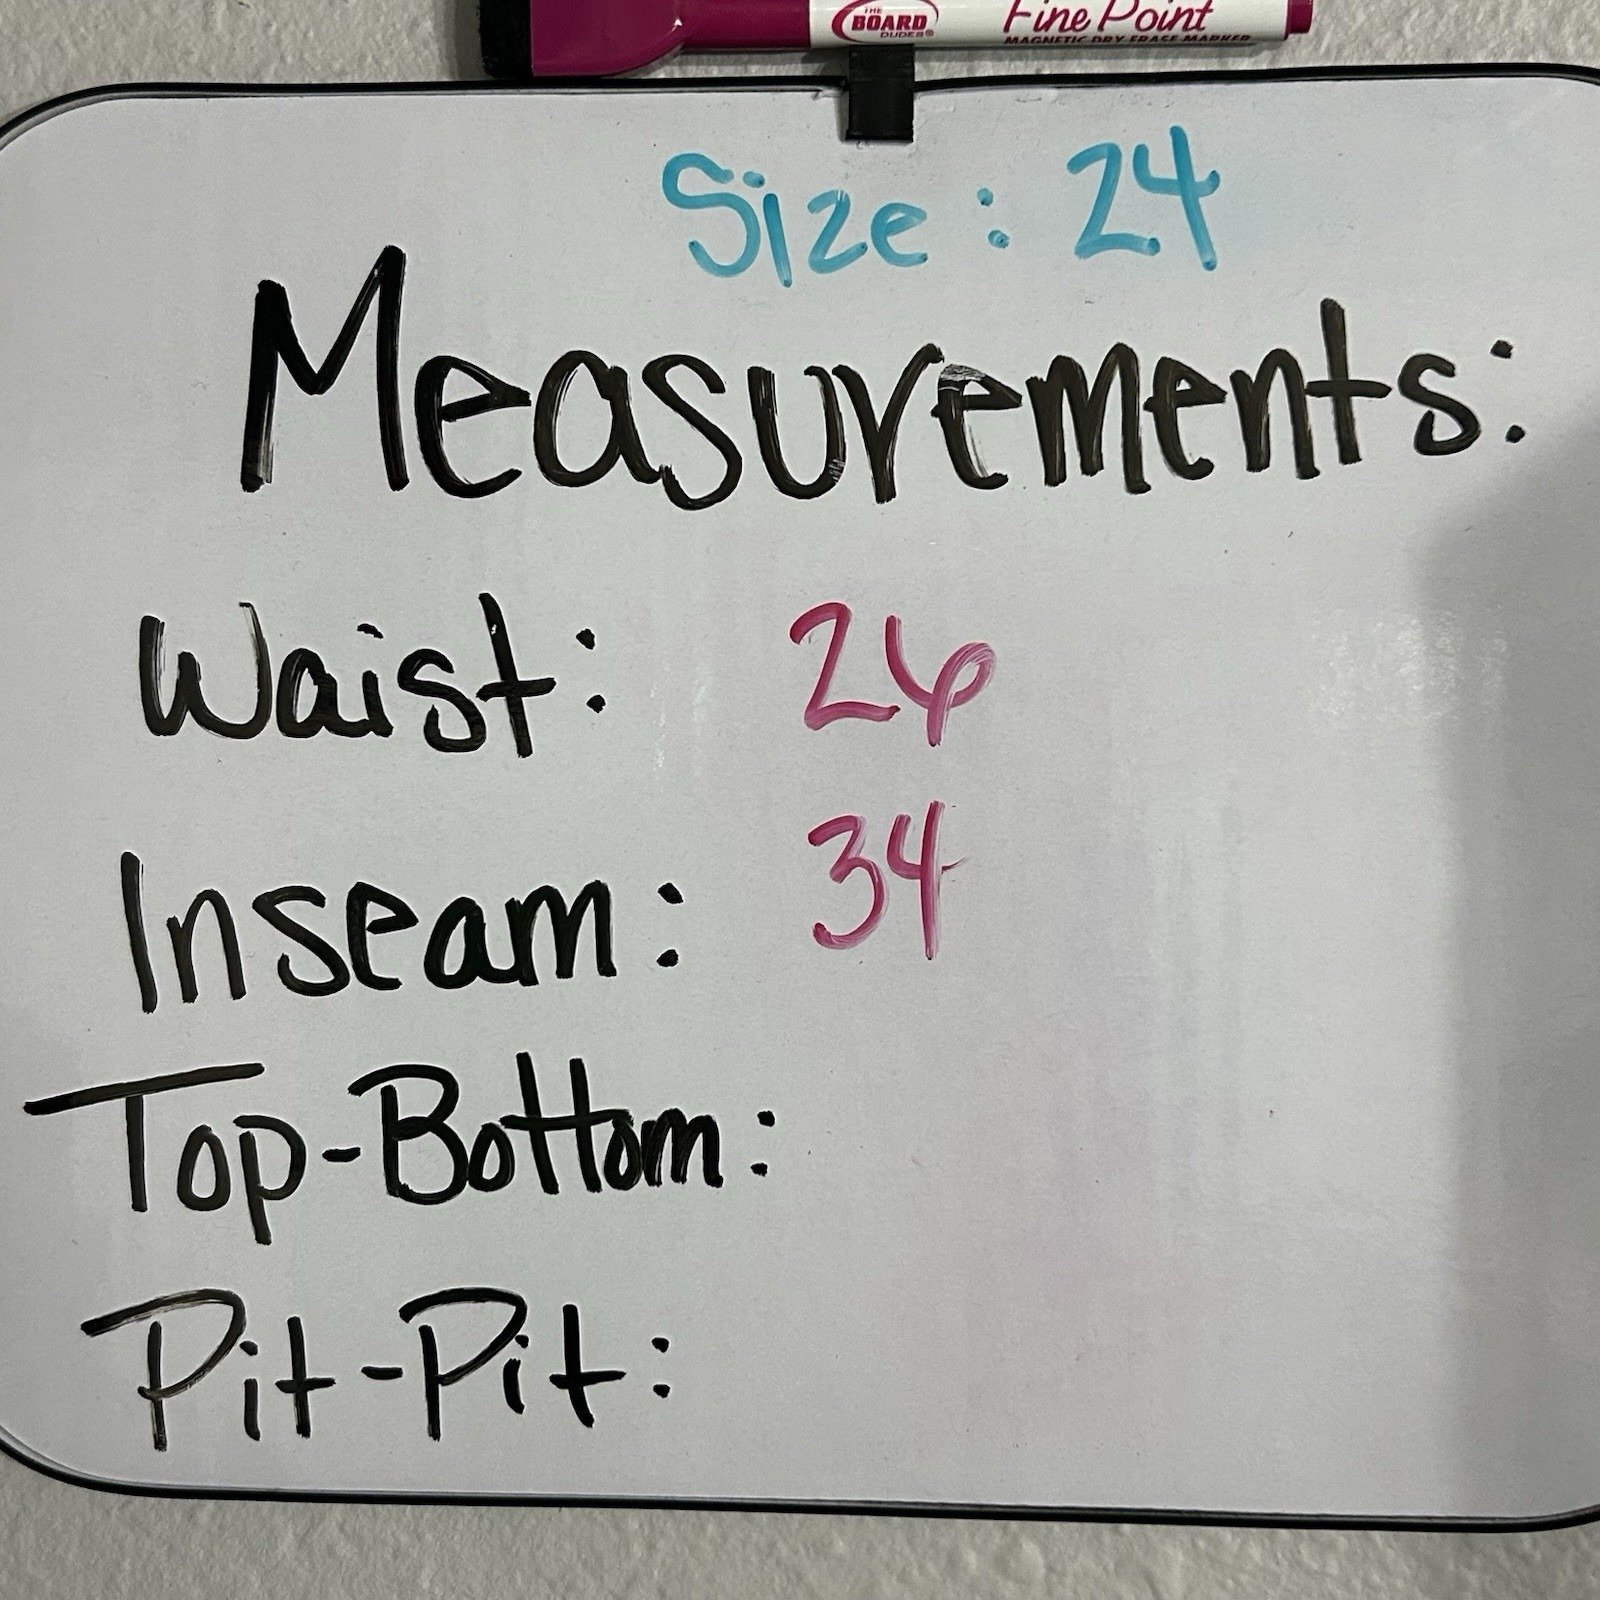 THE BOARD DUDES® Fine Point
MAGNETIC DRY ERASE MARKER
Size: 24
Measurements:
Waist: 26
Inseam: 34
Top-Bottom:
Pit-Pit: